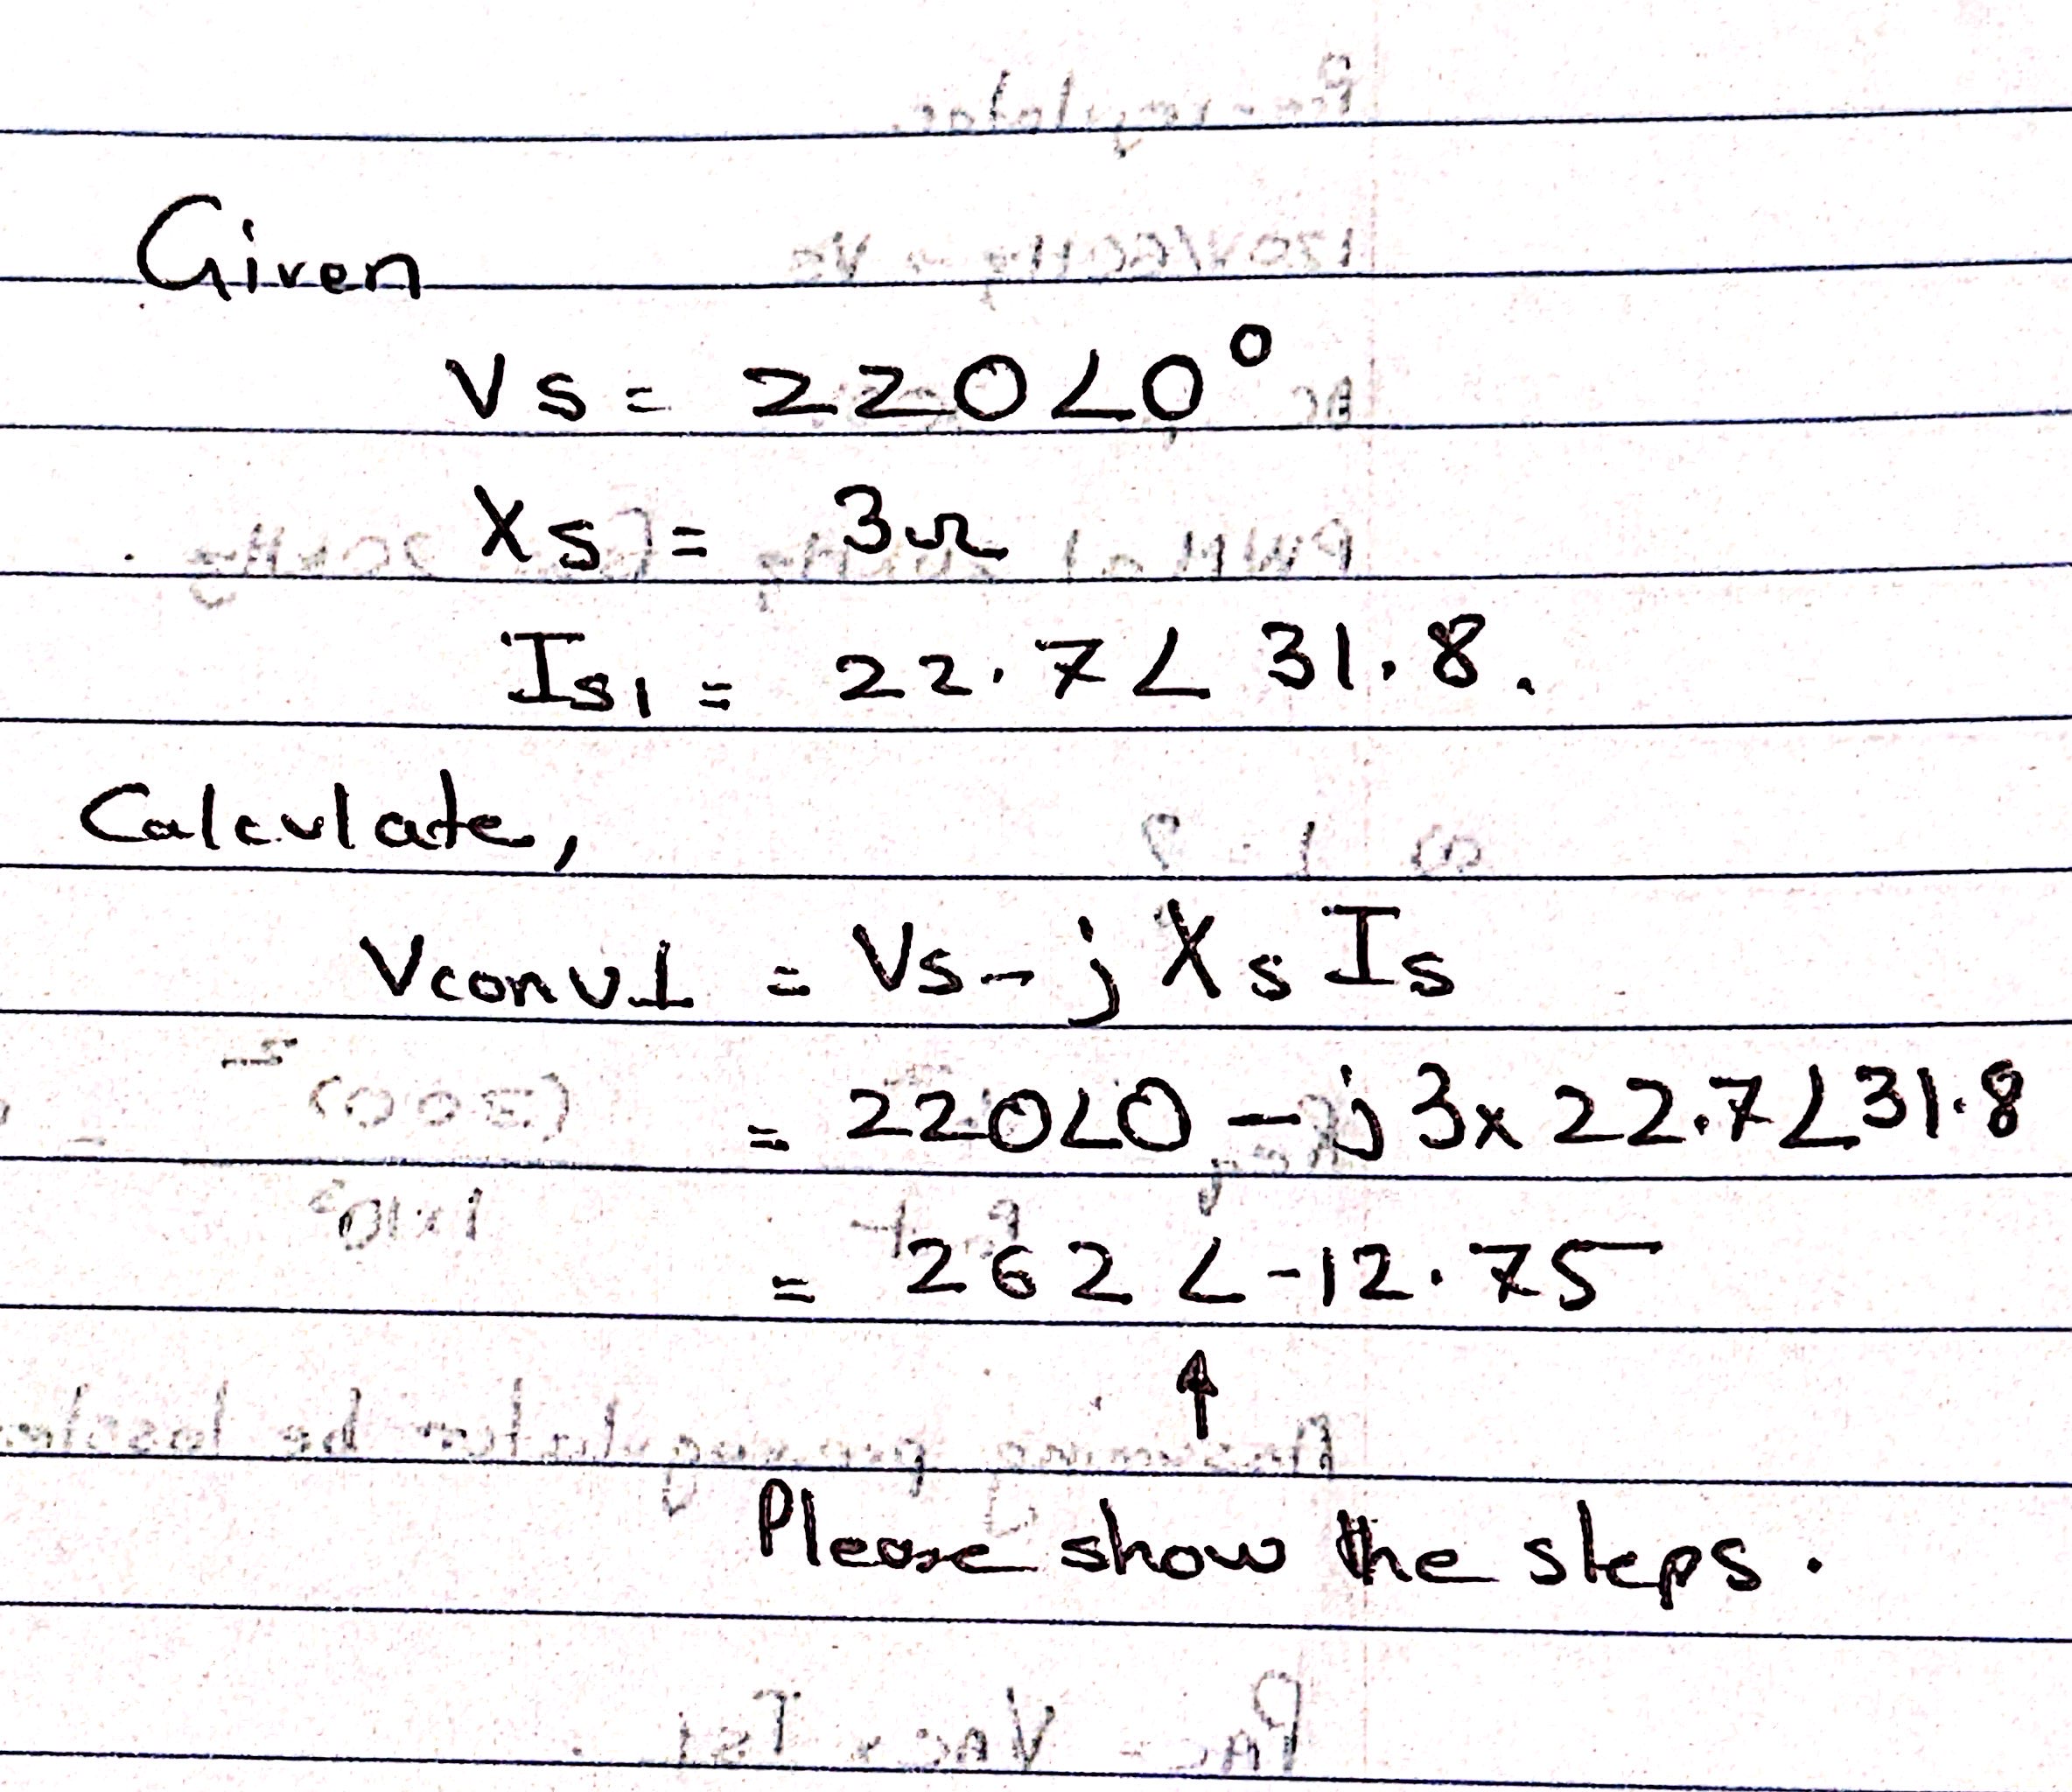 Given
Vs = 220∠0°
Xs = 3Ω
Is1 = 22.7∠31.8.
Calculate,
Vconv1 = Vs - j Xs Is
= 220∠0 - j3x22.7∠31.8
= 262∠-12.75
↑
Please show the steps.